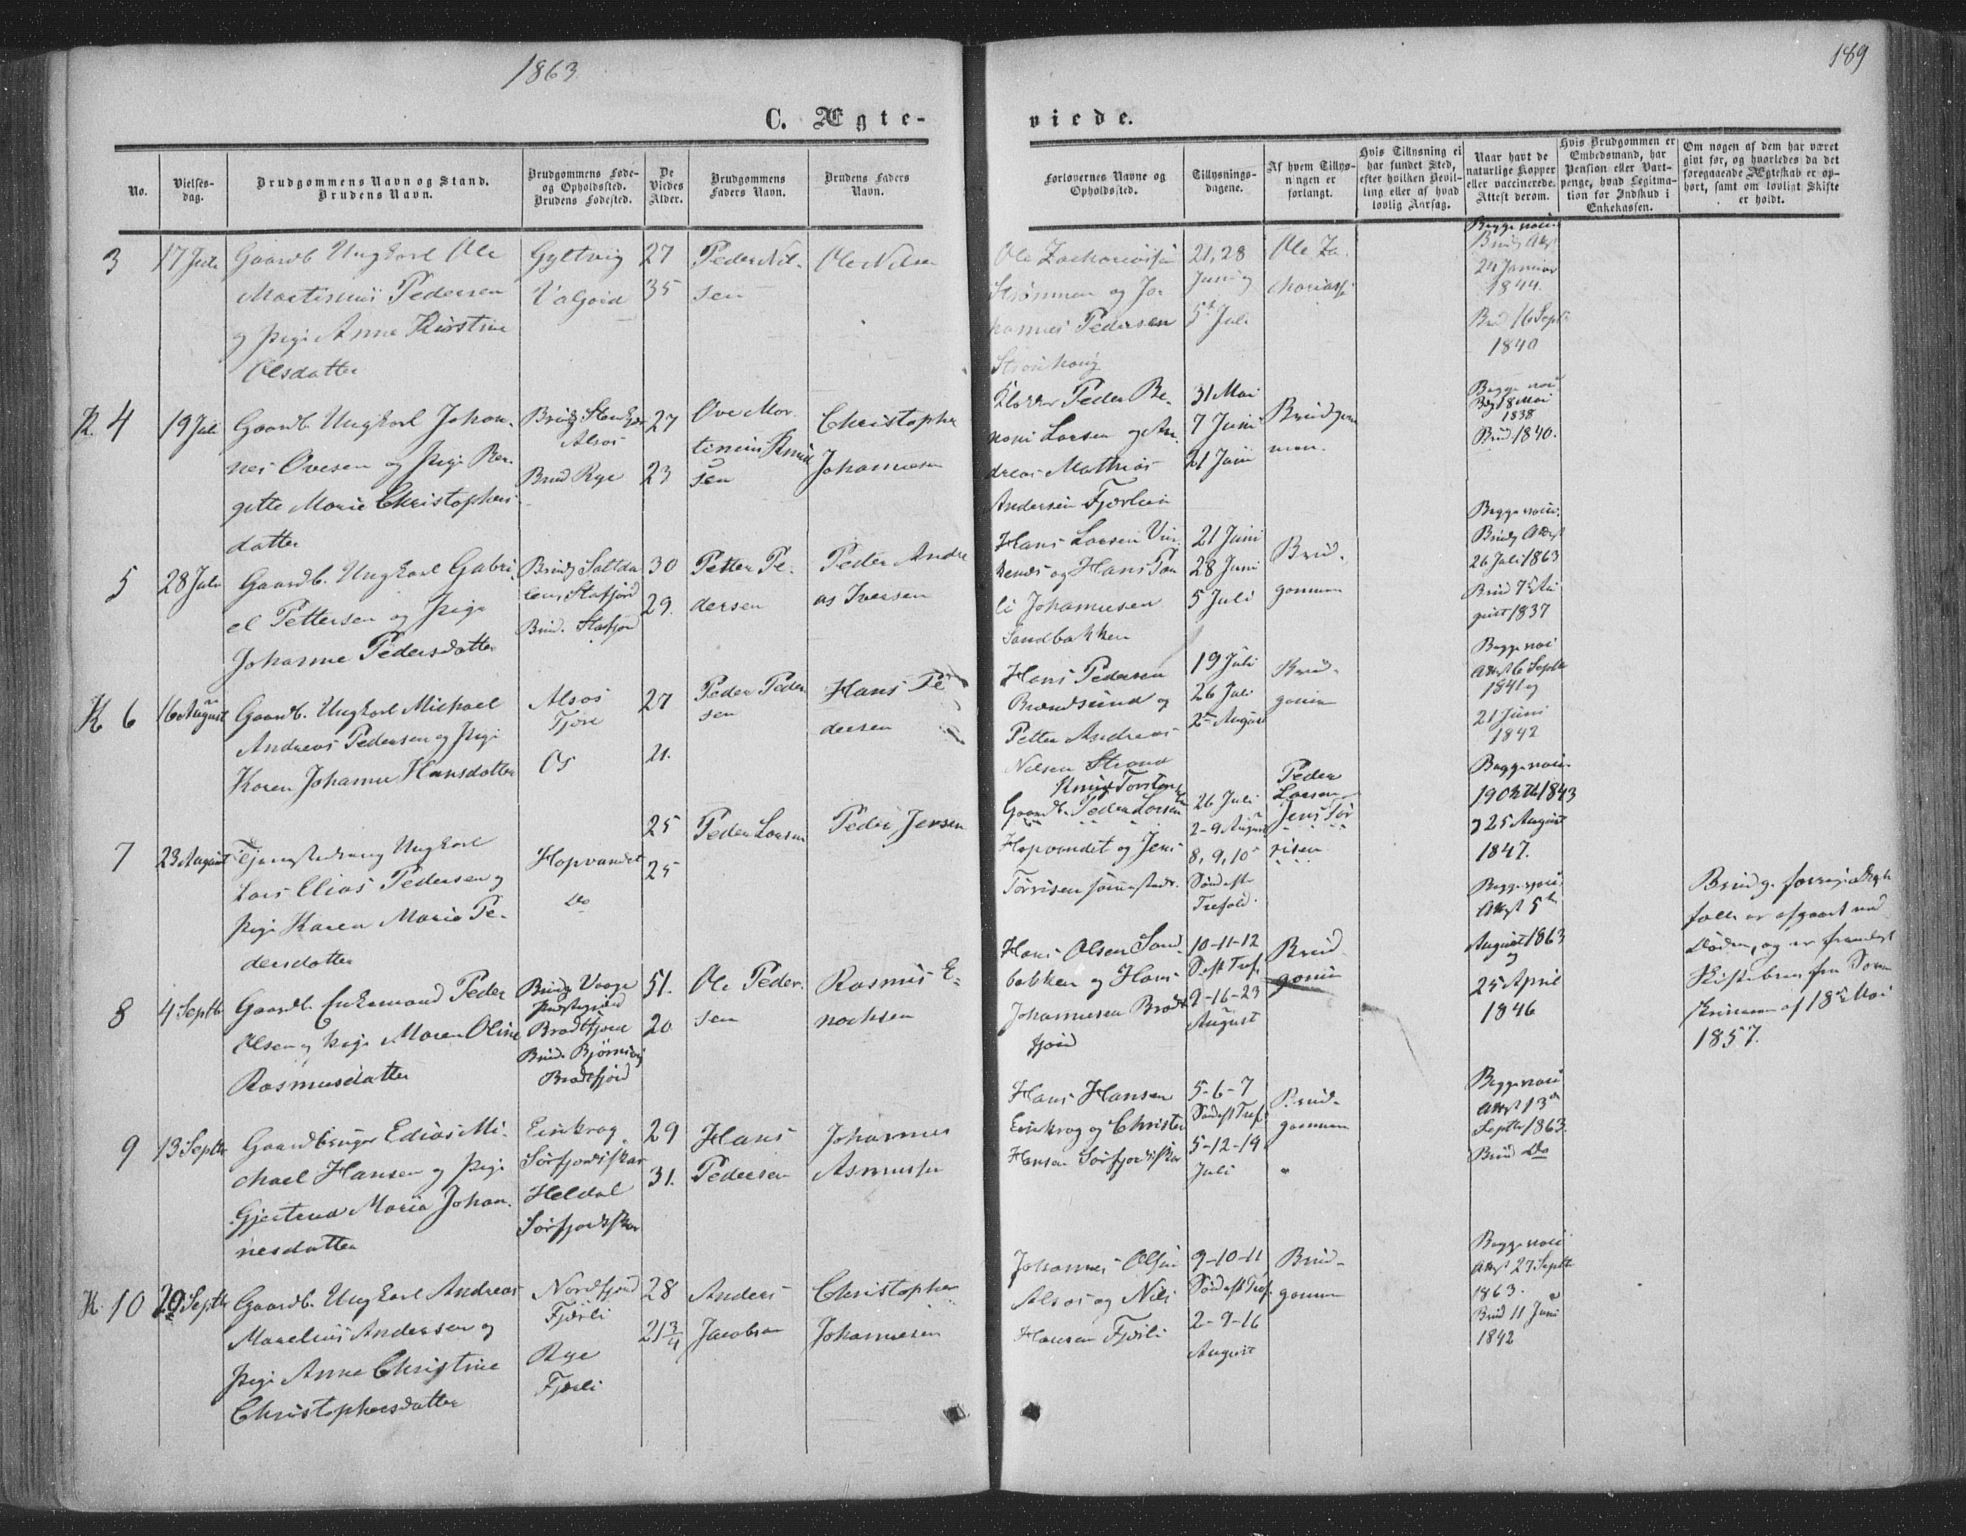 1863
189
C. Ægte-
viede.
No.
Vielses-
dag.
Brudgommens Navn og Stand.
Brudens Navn.
Brudgommens Føde-
og Opholdssted.
Brudens Fødested.
De
Viedes
Alder.
Brudgommens
Faders Navn.
Brudens Faders
Navn.
Forlovernes Navne og
Opholdssted.
Tillysnings-
dagene.
Af hvem Tillys-
ningen er
forlangt.
Hvis Tillysning ei
har fundet Sted,
efter hvilken Bevil-
ling eller af hvad
lovlig Aarsag.
Naar havt de
naturlige Kopper
eller vaccinerede.
Attest derom.
Hvis Brudgommen er
Embedsmand, har
Pension eller Vart-
penge, hvad Legitma-
tion for Indskud i
Enkekassen.
Om nogen af dem har været
givt for, og hvorledes da det
foregaaende Ægteskab er op-
hørt, samt om lovligt Skifte
er holdt.
3
17 Juli
Gaardb. Ungkarl Ole
Martinus Pedersen
og Pige Anne Kirstine
Olsdatter
Gyltvig
Valgjord
27
35
Peder Nil-
sen
Ole Nilsen
Ole Zachariassen
Strømmen og Jo
hannes Pedersen
21, 28
Juni og
5t Juli
Ole Za-
chariass
24 Januar
1844.
Brud 16 Septb
1840
K. 4
19 Juli
Gaardb. Ungkarl Johan-
nes Ovesen og Pige Ber-
gitte Marie Christophers-
datter
Alsos
Brud Rye
27
23
Ove Mor-
tinius Knud
sen
Christopher
Johannesen
Klokker Peder Be-
noni Larsen og An-
dreas Mathias
Andersen Fjærlien
31 Mai
7 Juni
21 Juni
Brudgom
men.
18 Mai
1838
Brud 1840.
5
28 Juli
Gaardb. Ungkarl Gabri-
el Pettersen og Pige
Johanne Pedersdatter
Brudg Saltda
len, Stafjord
Brud. Stafjord
30
29.
Petter Pe-
dersen
Peder Andre
as Iversen
Hans Larsen Vin-
kenes og Hans Pau
li Johannesen
Sandbakken
21 Juni
28 Juni
5 Juli
Brud-
gommen
26 Juli 1863
Brud 7de Au
gust 1837
K 6
16 August
Gaardb. Ungkarl Michael
Andreas Pedersen og Pige
Karen Johanne Hansdatter
Alsos
Fjøre
Os
27
21.
Peder Peder
sen
Hans Pe
dersen
Hans Pedersen
Brændsund og
Petter Andreas
Nilsen Strand
19 Juli
26 Juli
2den August
Brud-
gommen
6 Septb
1841 og
21 Juni
1842
7
23 August
Ungkarl
Lars Elias Pedersen og
Pige Karen Maria Pe-
dersdatter
Hopvandet
Do
25
25
Peder Larsen
Peder Jensen
Gaardb. Peder Larsen
Hopvandet og Jens
Tørrisen
26 Juli
2-9 August
8, 9, 10
Trefold.
Peder
Larsen
Jens Tør
risen
19 Oktb 1843
25 August
1847.
8
4 Septb
Gaardb. Enkemand Peder
Olsen og Pige Maren Oline
Rasmusdatter
Brudg Vaage
Præstegjeld
Brodtfjord
Brud. Bjørnevig
Brodtfjord
51.
20
Ole Peder-
sen
Rasmus E-
nochsen
Hans Olsen Sand-
bakken og Hans
Johannesen Brodt
fjord
10-11-12
9-16-23
August
Brud-
gommen
Attest 5te
August 1863
og
25 April
1846
Brudg. forrige Ægte
1857.
9
13 Septb
Gaardbruger Edias Mi-
chael Hansen og Pige
Gjertrud Maria Johan-
nesdatter
Eirikrog
Sørfjordskar
Heldal
Sørfjordskar
29
31.
Hans
Pedersen
Johannes
Asmussen
Hans Hansen
Eirikrog og Christen
Hansen Sørfjordskar
5-6-7
5-12-19
Juli
Brud-
gommen
"
Attest 13de
Septb 1863.
Brud Do
K. 10
20 Septb
Gaardb. Ungkarl Andreas
Marelius Andersen og
Pige Anne Christine
Christophersdatter
Nordfjord
Fjærli
Rye
Fjærli
28
21 3/4
Anders
Jacobsen
Christopher
Johannesen
Johannes Olsen
Alsos og Nils
Hansen Fjærli
9-10-11
2-9-16
August
Brud-
gommen
Attest 27 Septb
1863.
Brud 11 Juni
1842